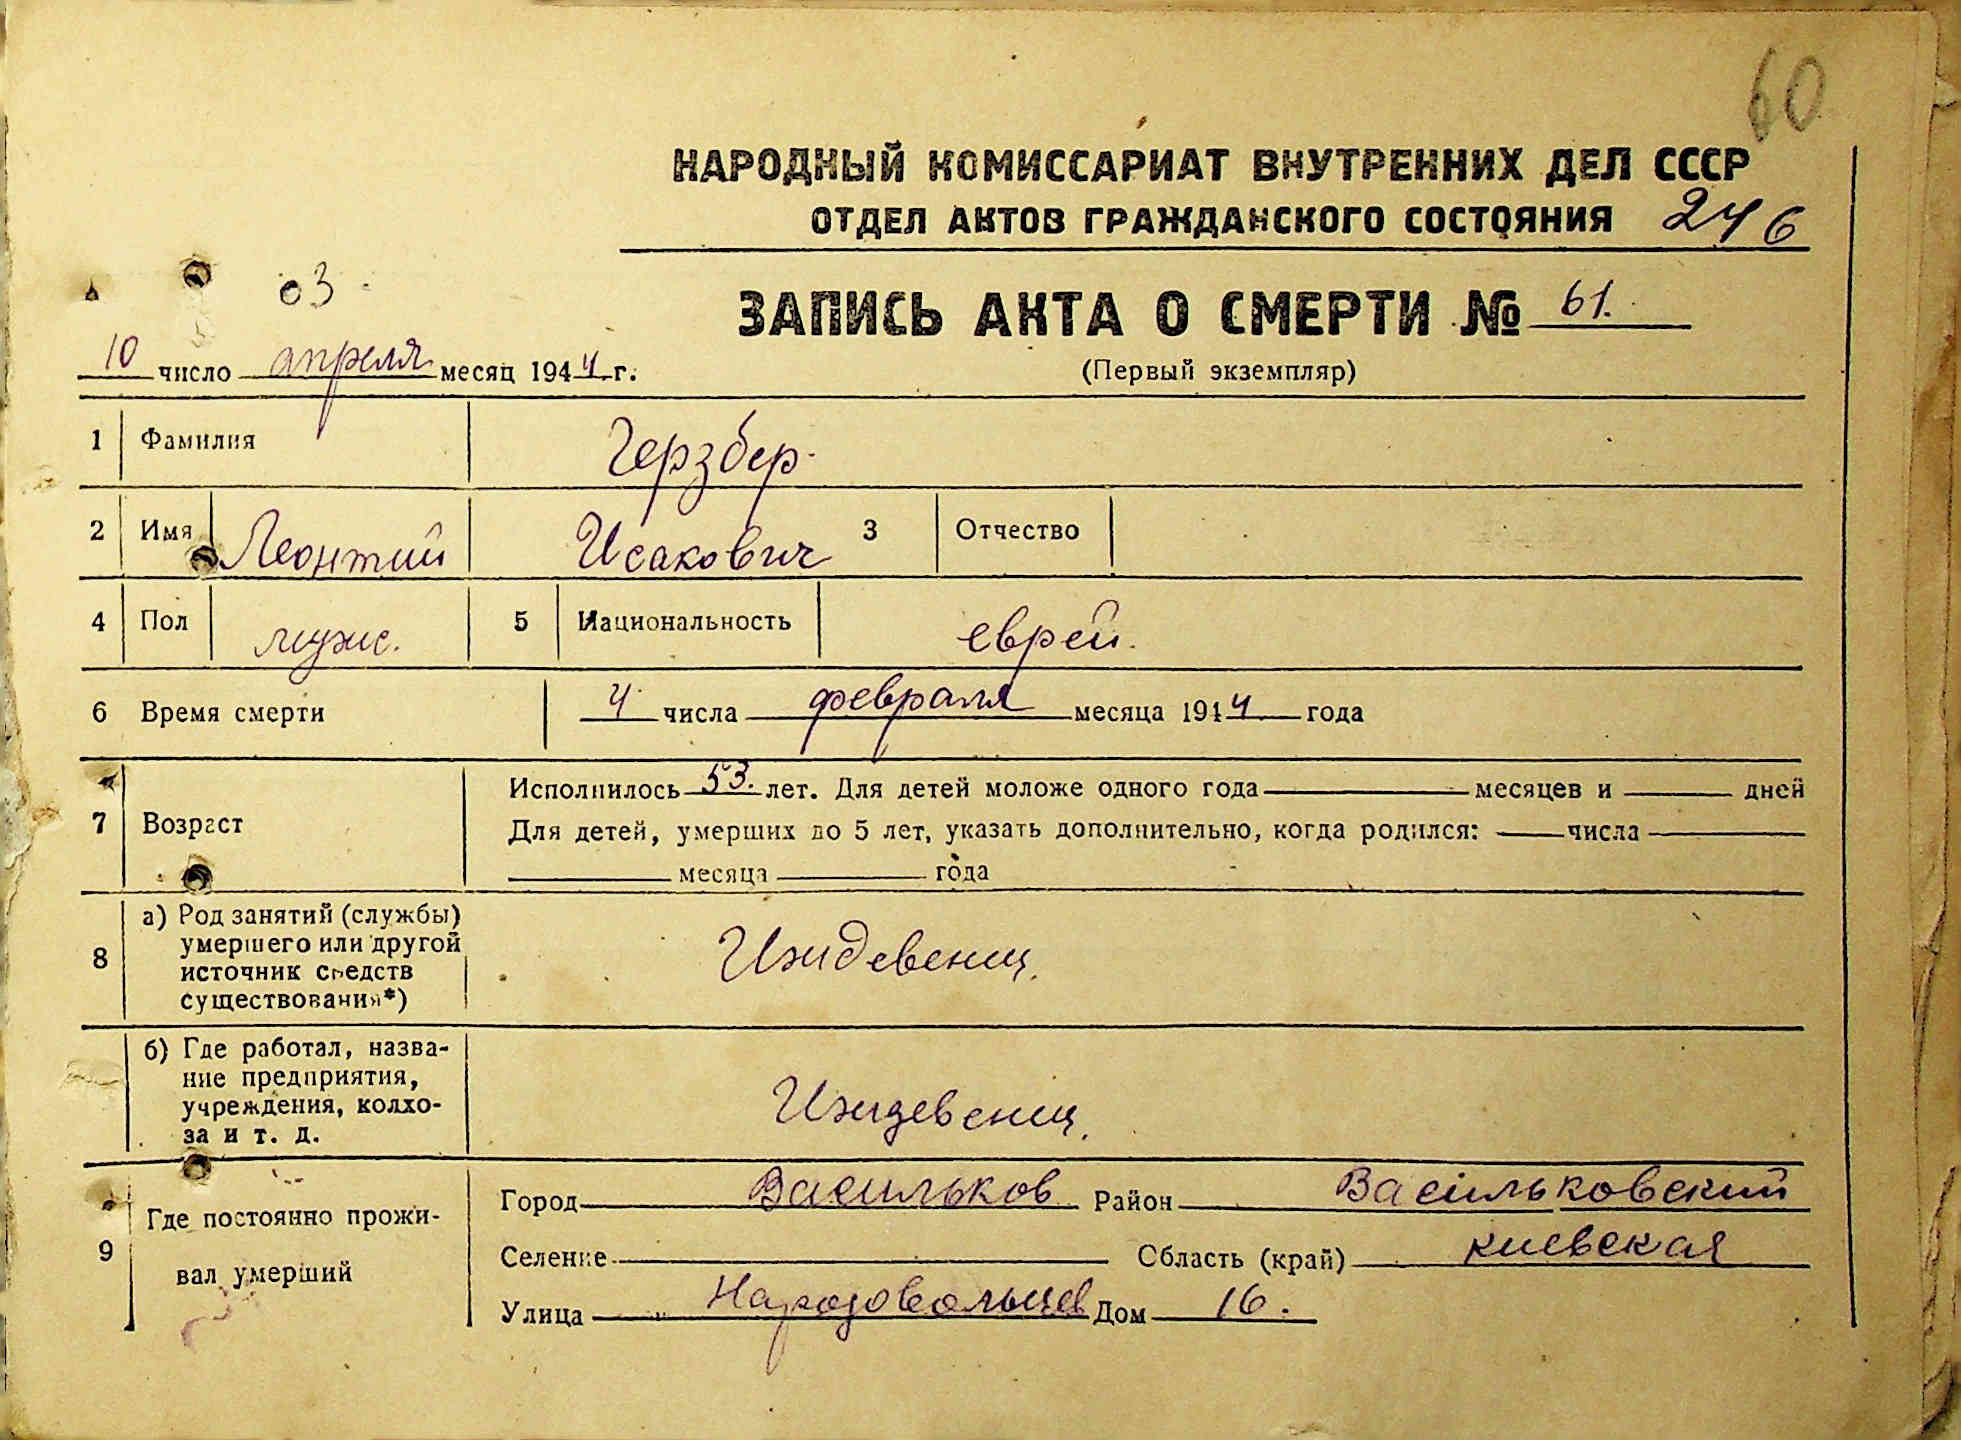 60
НАРОДНЫЙ КОМИССАРИАТ ВНУТРЕННИХ ДЕЛ СССР
ОТДЕЛ АКТОВ ГРАЖДАНСКОГО СОСТОЯНИЯ 246
03
ЗАПИСЬ АКТА О СМЕРТИ № 61.
10 число апреля месяц 1944 г.
(Первый экземпляр)
1 Фамилия Герзбер
2 Имя Леонтий Исакович 3 Отчество
4 Пол муж. 5 Национальность еврей.
6 Время смерти 4 числа февраля месяца 1944 года
Исполнилось 53. лет. Для детей моложе одного года месяцев и дней
7 Возраст Для детей, умерших до 5 лет, указать дополнительно, когда родился: числа
месяца года
а) Род занятий (службы)
умершего или другой
8 источник средств Иждевениц.
существования*)
б) Где работал, назва-
ние предприятия,
учреждения, колхо- Иждевениц.
за и т. д.
Город Васильков Район Васильковский
9 Где постоянно прожи-
вал умерший
Селение Область (край) киевская
Улица Народовольцев Дом 16.